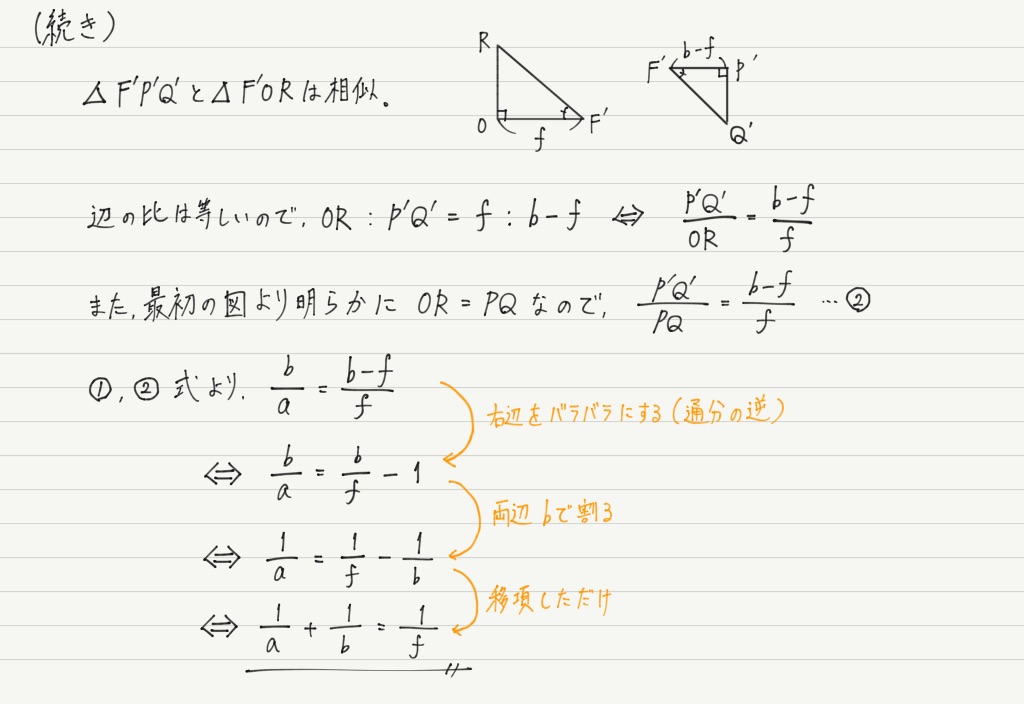 (続き)
△F'P'Q'と△F'ORは相似.
R
O
f
F'
F'
b-f
P'
Q'
辺の比は等しいので, OR : P'Q' = f : b-f ⇔ P'Q'/OR = b-f/f
また, 最初の図より明らかに OR = PQ なので, P'Q'/PQ = b-f/f …②
①, ② 式より. b/a = b-f/f
右辺をバラバラにする(通分の逆)
⇔ b/a = b/f - 1
両辺 bで割る
⇔ 1/a = 1/f - 1/b
移項しただけ
⇔ 1/a + 1/b = 1/f